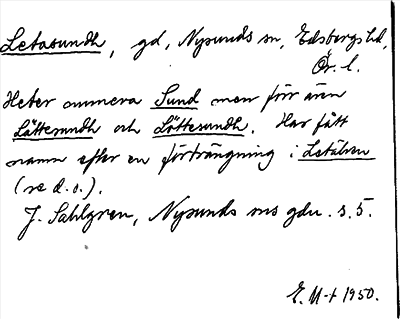 Letasundh, gd, Nysunds sn, Edsbergs hd,
Ör. l.
Heter numera Sund men förr även
Lättesundh och Löttesundh. Har fått
namn efter en förträngning i Letälven
(se d.o.).
J. Sahlgren, Nysunds sns gdn. s. 5.
E. M-t 1950.